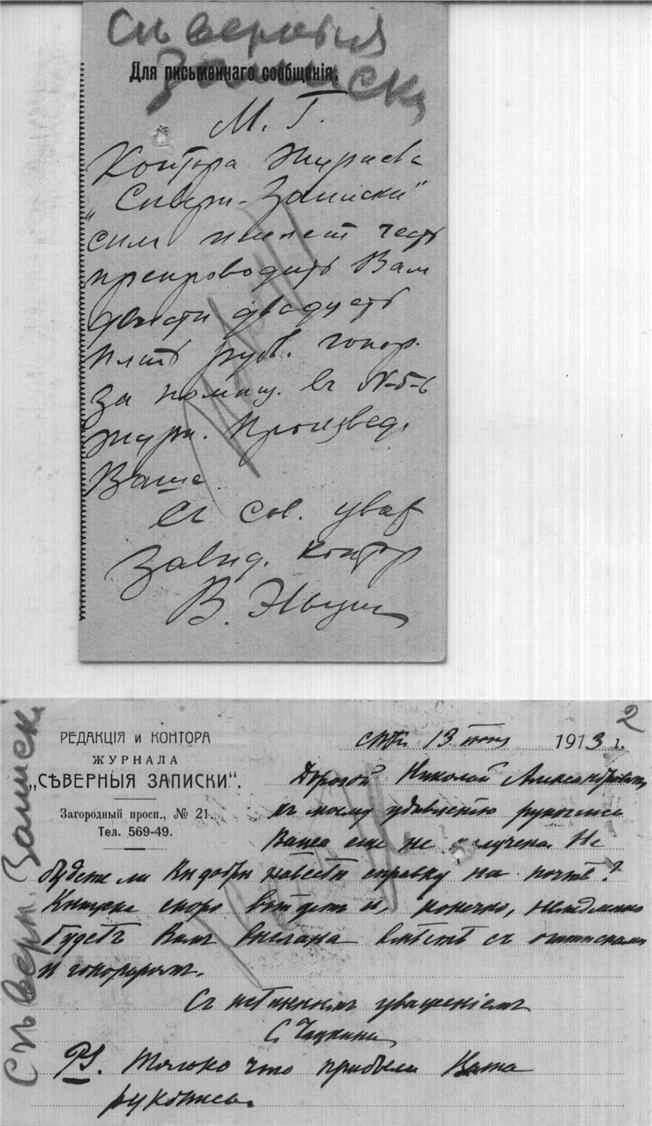 Сѣверныя
Записки
Для письменнаго сообщенія.
М. Г.
Контора Журнала
"Сѣверн. Записки"
сим имеет честь
препроводить Вам
двѣсти двадцать
пять руб. гонор.
за помѣщ. въ №-5-6
журн. Произвед.
Ваше
Съ сов. уваж
Завѣд. контор
В.
2
РЕДАКЦІЯ и КОНТОРА
ЖУРНАЛА
„СѢВЕРНЫЯ ЗАПИСКИ".
Загородный просп., № 21.
Тел. 569-49.
Сѣверн. Записк.
СПб. 13 1913 г.
Дорогой Николай Александрович,
къ моему удивленію рукопись
Ваша еще не получена. Не
будете ли Вы добры навести справку на почтѣ?
Книжка скоро выйдет и, конечно, немедленно
будетъ Вам выслана вмѣстѣ с оттисками
и гонораром.
Съ истиннымъ уваженіемъ
С. Чацкина
PS. Только что прибыла Ваша
рукопись.